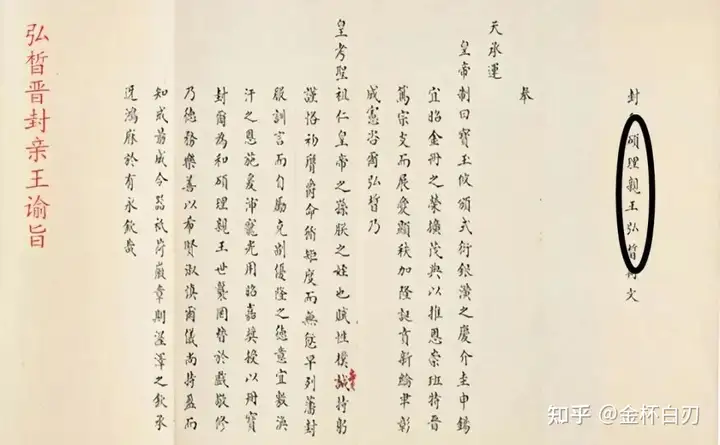 封碩理親王弘晳冊文
奉
天承運
皇帝制曰寶玉攸頒式衍銀潢之慶介圭申錫
宜昭金冊之榮擴茂典以推恩崇班特晉
篤宗支而展愛顯秩加隆誕賁新綸聿彰
成憲咨爾弘晳乃
皇考聖祖仁皇帝之孫朕之姪也賦性樸誠持躬
謹恪初膺爵命循矩度而無愆早列藩封
服訓言而自勵克副優隆之德意宜敷渙
汗之恩施爰沛寵光用昭嘉獎授以冊寶
封爾為和碩理親王世襲罔替於戲敬修
乃德務樂善以希賢淑慎爾儀尚持盈而
知戒成令器祗荷章期渥澤之欽承
迓鴻庥於有永欽哉
弘晳晋封亲王谕旨
知乎 @金杯白刃